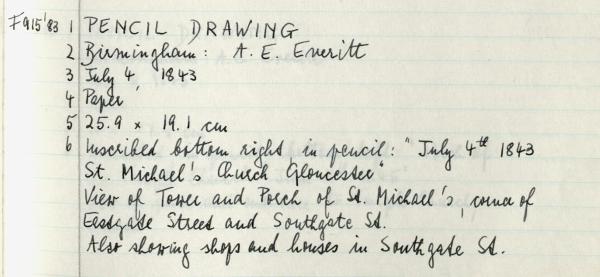 F915'83 1 PENCIL DRAWING
2 Birmingham: A. E. Everitt
3 July 4, 1843
4 Paper
5 25.9 x 19.1 cm
6 Inscribed bottom right, in pencil: "July 4th 1843
St. Michael's Church Gloucester"
View of Tower and Porch of St. Michael's, corner of
Eastgate Street and Southgate St.
Also showing shops and houses in Southgate St.